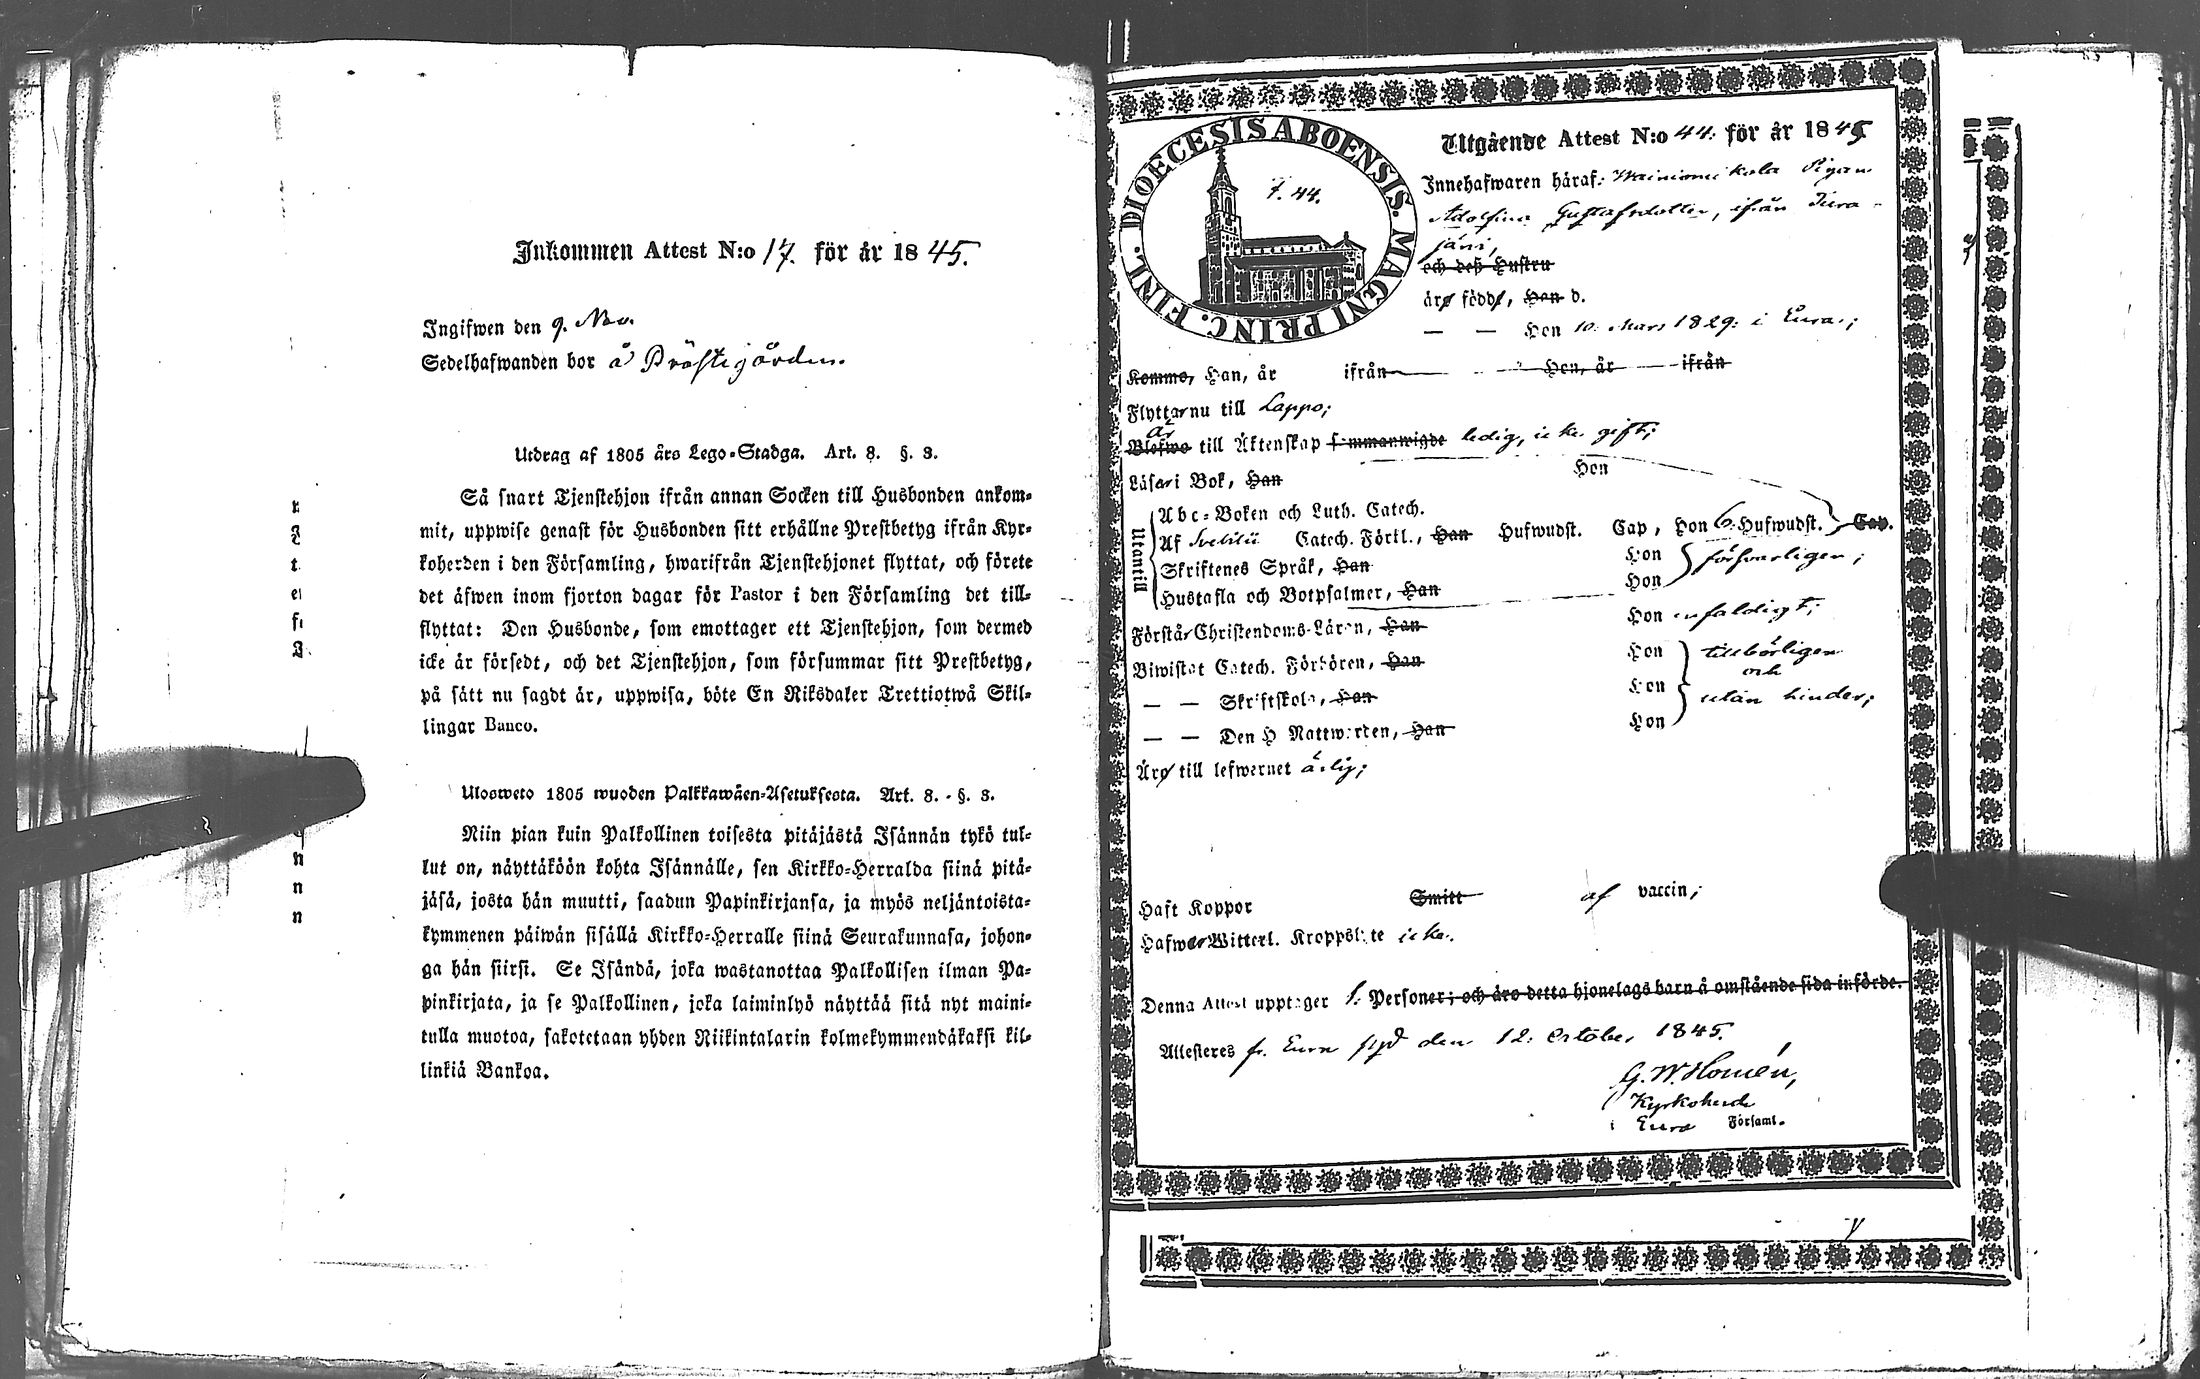 Inkommen Attest N:o 17. för år 1845.
Ingifwen den 9. Nov.
Sedelhafwanden bor å Prästgården.
Utdrag af 1805 års Lego-Stadga. Art. 8. §. 3.
Så snart Tjenstehjon ifrån annan Socken till Husbonden ankom-
mit, uppwise genast för Husbonden sitt erhållne Prestbetyg ifrån Kyr-
koherden i den Församling, hwarifrån Tjenstehjonet flyttat, och förete
det äfwen inom fjorton dagar för Pastor i den Församling det till-
flyttat: Den Husbonde, som emottager ett Tjenstehjon, som dermed
icke är försedt, och det Tjenstehjon, som försummar sitt Prestbetyg,
på sätt nu sagdt är, uppwisa, böte En Riksdaler Trettiotwå Skil-
lingar Banco.
Ulosweto 1805 wuoden Palkkawäen-Asetuksesta. Art. 8. §. 3.
Niin pian kuin Palkollinen toisesta pitäjästä Isännän tykö tul-
lut on, näyttäköön kohta Isännälle, sen Kirkko-Herralda siinä pitä-
jäsä, josta hän muutti, saadun Papinkirjansa, ja myös neljäntoista-
kymmenen päiwän sisällä Kirkko-Herralle siinä Seurakunnasa, johon-
ga hän siirsi. Se Isändä, joka wastanottaa Palkollisen ilman Pa-
pinkirjata, ja se Palkollinen, joka laiminlyö näyttää sitä nyt maini-
tulla muotoa, sakotetaan yhden Riikintalarin kolmekymmendäkaksi kil-
linkiä Bankoa.
DIOECESIS ABOENSIS. MAGNI PRINC. FINL.
F. 44.
Utgående Attest N:o 44. för år 1845
Innehafwaren häraf: Pigan
Adolfina Gustafsdotter, ifrån Kiva-
järvi,
och dess Hustru
äro född, Han d.
— — Hon 10. Mars 1829. i Eura;
Komma, Han, år ifrån Hon, år ifrån
Flyttar nu till Lappo;
är
Blefwo till Äktenskap sammanwigde ledig, icke gift;
Läser i Bok, Han Hon
Utantill
Abc-Boken och Luth. Catech.
Af Svebilii Catech. Förkl., Han Hufwudst. Cap, Hon 6. Hufwudst. Cap.
Skriftenes Språk, Han Hon försvarligen;
Hustafla och Botpsalmer, Han Hon
Förstår Christendoms-Läran, Han Hon enfaldigt;
Biwistat Catech. Förhören, Han Hon tillbörligen
och
— — Skriftskola, Han Hon utan hinder;
— — Den H Nattwarden, Han Hon
Äro till lefwernet ärlig;
Haft Koppor Smitt af vaccin;
Hafwer Witterl. Kroppslyte icke.
Denna Attest upptager 1. Personer; och äro detta hjonelags barn å omstående sida införde.
Attesteras fr. Eura den 12. October 1845.
G. W. Homén,
Kyrkoherde
i Eura Församl.